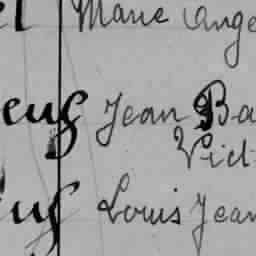 el Marie Ange
eug Jean Ba
Vict
eug Louis Jean